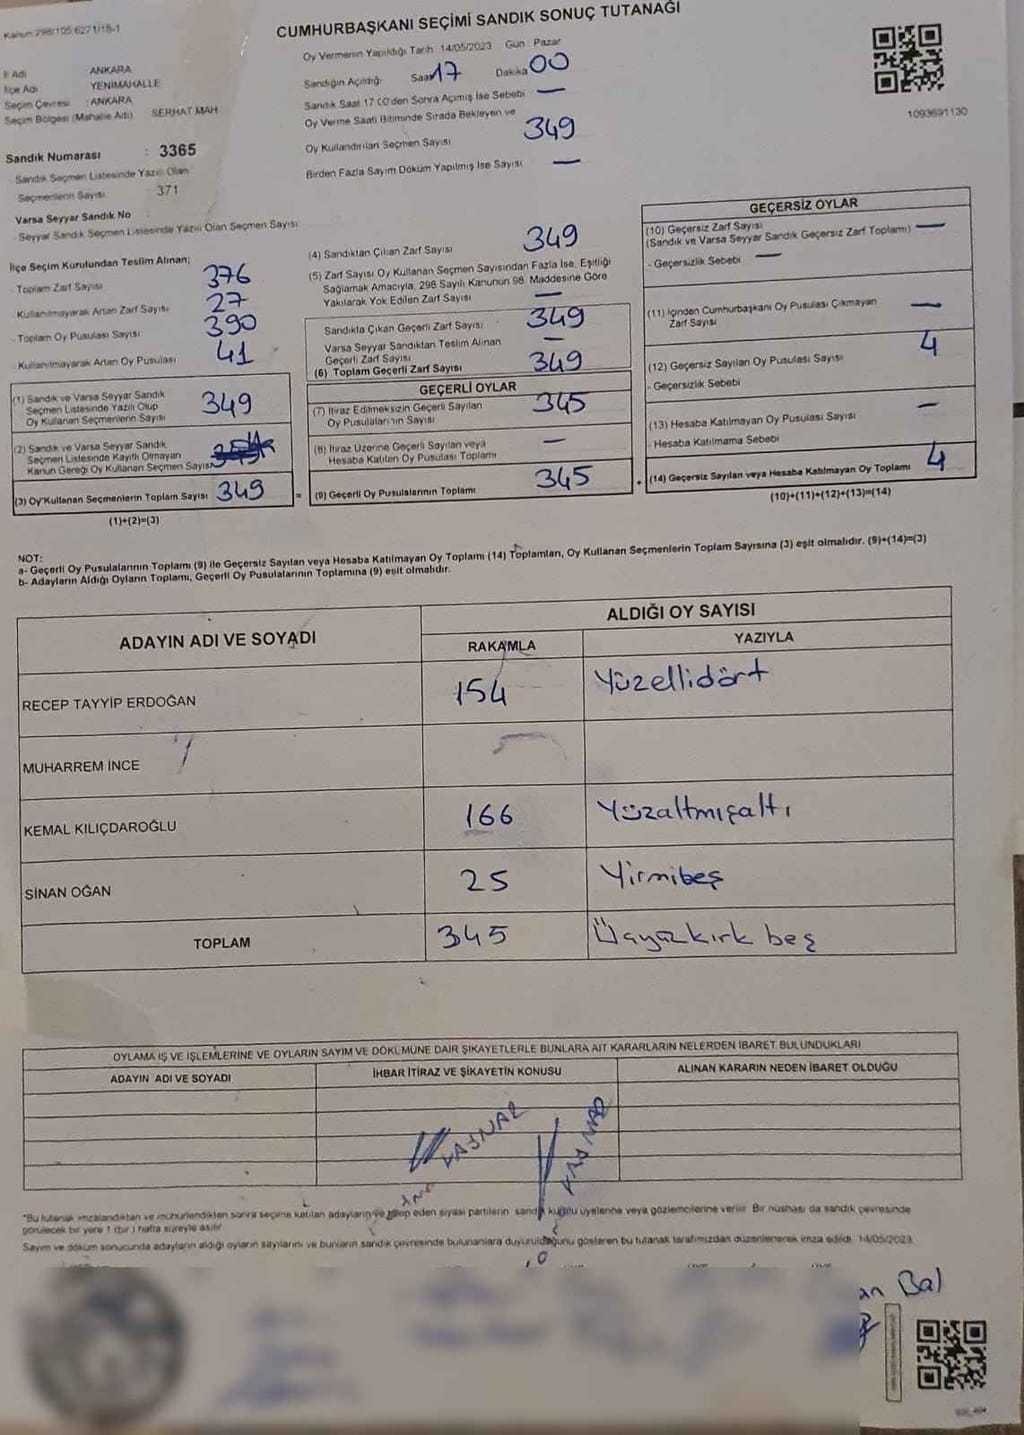 Kanun 298/105 6271/18-1
CUMHURBAŞKANI SEÇİMİ SANDIK SONUÇ TUTANAĞI
İl Adı ANKARA
İlçe Adı YENİMAHALLE
Seçim Çevresi : ANKARA
Seçim Bölgesi (Mahalle Adı) SERHAT MAH
Sandık Numarası : 3365
- Sandık Seçmen Listesinde Yazılı Olan
Seçmenlerin Sayısı 371
Varsa Seyyar Sandık No
- Seyyar Sandık Seçmen Listesinde Yazılı Olan Seçmen Sayısı
Oy Vermenin Yapıldığı Tarih 14/05/2023 Gün Pazar
Sandığın Açıldığı Saat 17 Dakika 00
Sandık Saat 17 00'den Sonra Açılmış İse Sebebi —
Oy Verme Saati Bitiminde Sırada Bekleyen ve
Oy Kullandırılan Seçmen Sayısı 349
Birden Fazla Sayım Döküm Yapılmış İse Sayısı —
1093691130
İlçe Seçim Kurulundan Teslim Alınan;
- Toplam Zarf Sayısı 376
- Kullanılmayarak Artan Zarf Sayısı 27
- Toplam Oy Pusulası Sayısı 390
- Kullanılmayarak Artan Oy Pusulası 41
(1) Sandık ve Varsa Seyyar Sandık
Seçmen Listesinde Yazılı Olup
Oy Kullanan Seçmenlerin Sayısı 349
(2) Sandık ve Varsa Seyyar Sandık
Seçmen Listesinde Kayıtlı Olmayan
Kanun Gereği Oy Kullanan Seçmen Sayısı
(3) Oy Kullanan Seçmenlerin Toplam Sayısı 349 =
(1)+(2)=(3)
(4) Sandıktan Çıkan Zarf Sayısı 349
(5) Zarf Sayısı Oy Kullanan Seçmen Sayısından Fazla İse, Eşitliği
Sağlamak Amacıyla, 298 Sayılı Kanunun 98. Maddesine Göre
Yakılarak Yok Edilen Zarf Sayısı —
Sandıkta Çıkan Geçerli Zarf Sayısı 349
Varsa Seyyar Sandıktan Teslim Alınan
Geçerli Zarf Sayısı —
(6) Toplam Geçerli Zarf Sayısı 349
GEÇERLİ OYLAR
(7) İtiraz Edilmeksizin Geçerli Sayılan
Oy Pusulalarının Sayısı 345
(8) İtiraz Üzerine Geçerli Sayılan veya
Hesaba Katılan Oy Pusulası Toplamı —
(9) Geçerli Oy Pusulalarının Toplamı 345 +
GEÇERSİZ OYLAR
(10) Geçersiz Zarf Sayısı
(Sandık ve Varsa Seyyar Sandık Geçersiz Zarf Toplamı) —
- Geçersizlik Sebebi —
(11) İçinden Cumhurbaşkanı Oy Pusulası Çıkmayan
Zarf Sayısı —
(12) Geçersiz Sayılan Oy Pusulası Sayısı 4
- Geçersizlik Sebebi
(13) Hesaba Katılmayan Oy Pusulası Sayısı —
- Hesaba Katılmama Sebebi
(14) Geçersiz Sayılan veya Hesaba Katılmayan Oy Toplamı 4
(10)+(11)+(12)+(13)=(14)
NOT:
a- Geçerli Oy Pusulalarının Toplamı (9) ile Geçersiz Sayılan veya Hesaba Katılmayan Oy Toplamı (14) Toplamları, Oy Kullanan Seçmenlerin Toplam Sayısına (3) eşit olmalıdır. (9)+(14)=(3)
b- Adayların Aldığı Oyların Toplamı, Geçerli Oy Pusulalarının Toplamına (9) eşit olmalıdır.
ADAYIN ADI VE SOYADI ALDIĞI OY SAYISI
RAKAMLA YAZIYLA
RECEP TAYYİP ERDOĞAN 154 Yüzellidört
MUHARREM İNCE
KEMAL KILIÇDAROĞLU 166 Yüzaltmışaltı
SİNAN OĞAN 25 Yirmibeş
TOPLAM 345 Üçyüzkırk beş
OYLAMA İŞ VE İŞLEMLERİNE VE OYLARIN SAYIM VE DÖKÜMÜNE DAİR ŞİKAYETLERLE BUNLARA AİT KARARLARIN NELERDEN İBARET BULUNDUKLARI
ADAYIN ADI VE SOYADI İHBAR İTİRAZ VE ŞİKAYETİN KONUSU ALINAN KARARIN NEDEN İBARET OLDUĞU
"Bu tutanak imzalandıktan ve mühürlendikten sonra seçime katılan adayların ve talep eden siyasi partilerin sandık kurulu üyelerine veya gözlemcilerine verilir. Bir nüshası da sandık çevresinde
görülecek bir yere 1 (bir) hafta süreyle asılır.
Sayım ve döküm sonucunda adayların aldığı oyların sayılarını ve bunların sandık çevresinde bulunanlara duyurulduğunu gösteren bu tutanak tarafımızdan düzenlenerek imza edildi. 14/05/2023
an Bal